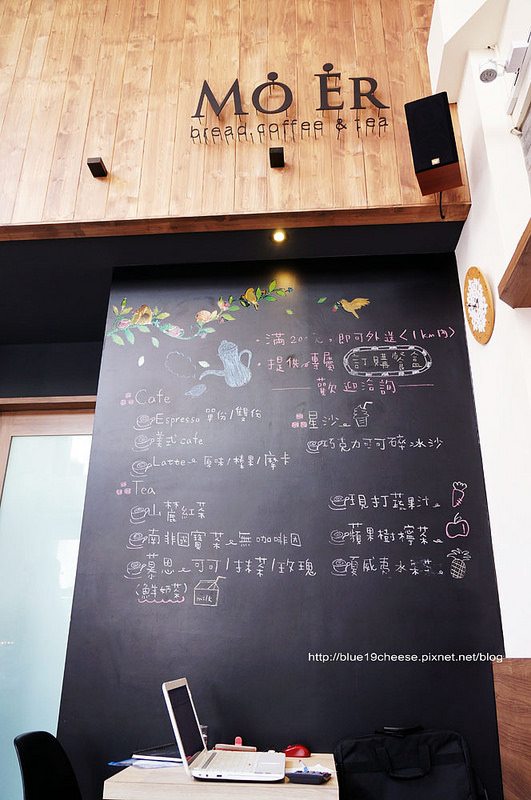 MO ER
bread, coffee & tea
・滿200元,即可外送<1km內>
・提供專屬 訂購餐盒
歡迎洽詢
Cafe
Espresso 單份/雙份
美式 cafe
Latte 原味/榛果/摩卡
星沙
巧克力可可碎冰沙
Tea
南非國寶茶 無咖啡因
慕思 可可/抹茶/玫瑰
(鮮奶茶)
milk
現打蔬果汁
蘋果樹檸茶
夏威夷水果茶
http://blue19cheese.pixnet.net/blog